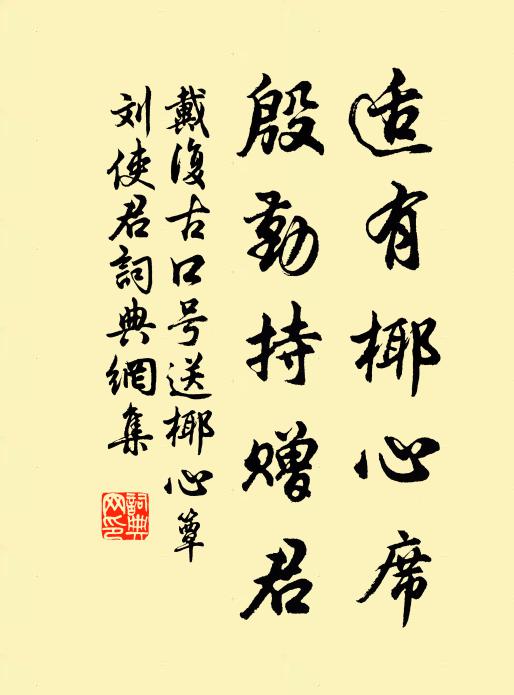 适有椰心席
殷勤持赠君
戴復古口号送椰心簟
刘使君詞典網集
詞典網印